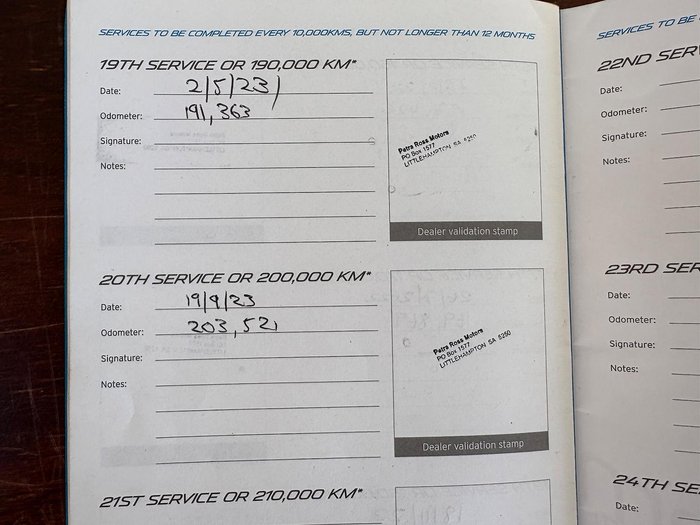 SERVICES TO BE COMPLETED EVERY 10,000KMS, BUT NOT LONGER THAN 12 MONTHS
19TH SERVICE OR 190,000 KM*
Date: 2/5/23
Odometer: 191,363
Signature:
Notes:
Petra Ross Motors
PO Box 1577
LITTLEHAMPTON SA 5250
Dealer validation stamp
20TH SERVICE OR 200,000 KM*
Date: 19/9/23
Odometer: 203,521
Signature:
Notes:
Petra Ross Motors
PO Box 1577
LITTLEHAMPTON SA 5250
Dealer validation stamp
21ST SERVICE OR 210,000 KM*
SERVICES TO BE
22ND SERV
Date:
Odometer:
Signature:
Notes:
23RD SER
Date:
Odometer:
Signature:
Notes:
24TH SE
Date: